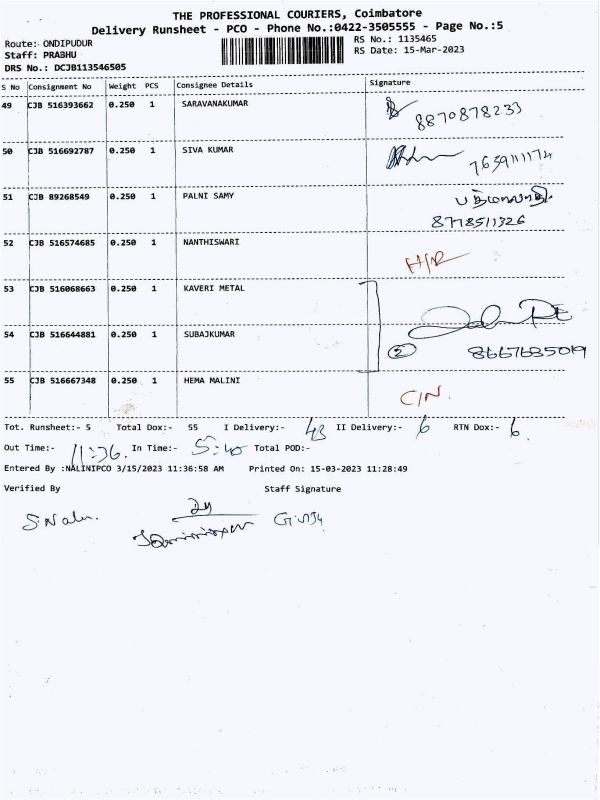 THE PROFESSIONAL COURIERS, Coimbatore
Delivery Runsheet - PCO - Phone No.:0422-3505555 - Page No.:5
Route: ONDIPUDUR
RS No.: 1135465
Staff: PRABHU
RS Date: 15-Mar-2023
DRS No.: DCJB113546505
S No Consignment No Weight PCS Consignee Details Signature
49 CJB 516393662 0.250 1 SARAVANAKUMAR 8870878233
50 CJB 516692787 0.250 1 SIVA KUMAR 7659111174
51 CJB 89268549 0.250 1 PALNI SAMY
8778511326
52 CJB 516574685 0.250 1 NANTHISWARI H/R
53 CJB 516068663 0.250 1 KAVERI METAL
54 CJB 516644881 0.250 1 SUBAJKUMAR 2 8667685019
55 CJB 516667348 0.250 1 HEMA MALINI C/N.
Tot. Runsheet:- 5 Total Dox:- 55 I Delivery:- 43 II Delivery:- 6 RTN Dox:- 6.
Out Time:- 11:36. In Time:- 5:40 Total POD:-
Entered By :NALINIPCO 3/15/2023 11:36:58 AM Printed On: 15-03-2023 11:28:49
Verified By Staff Signature